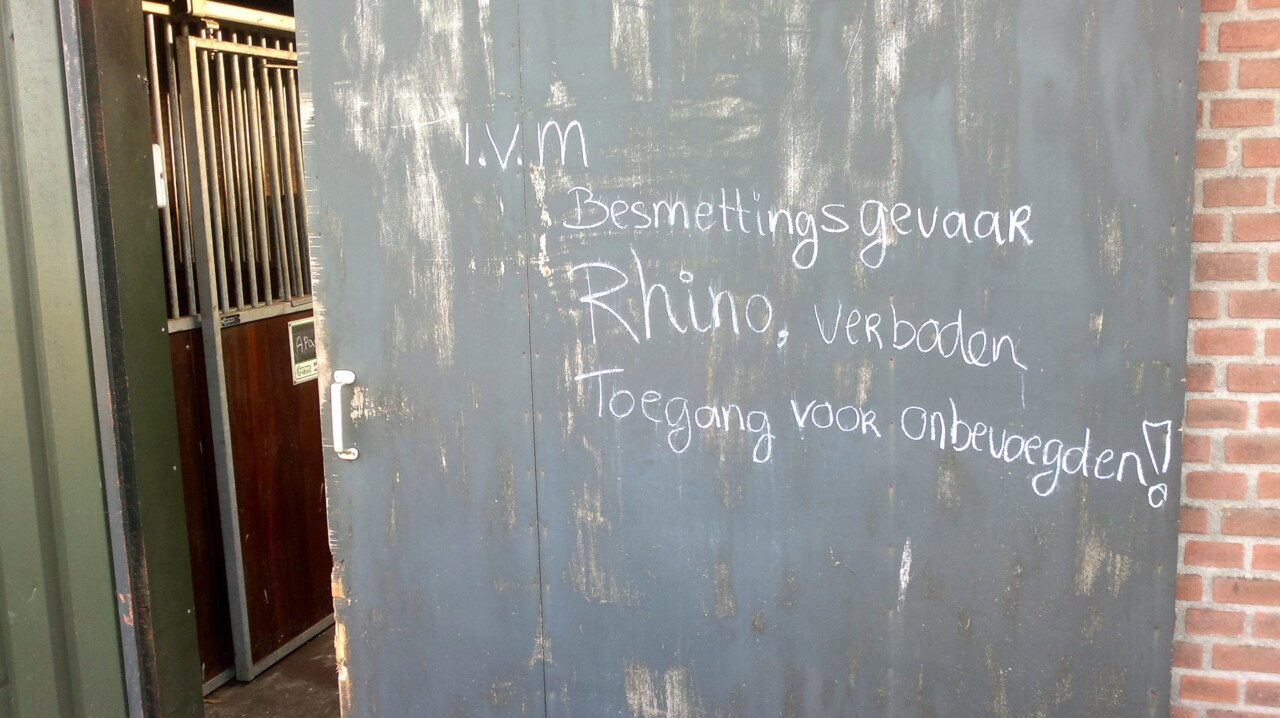 I.V.M
Besmettingsgevaar
Rhino, verboden
Toegang voor onbevoegden!